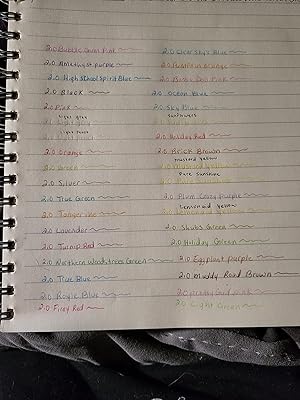 2.0 Bubble Gum Pink
2.0 Amethyst purple
2.0 High School Spirit Blue
2.0 Black
2.0 Pink
light gray
light peach
2.0 Orange
2.0 Green
2.0 Silver
2.0 True Green
2.0 Tangerine
2.0 Lavender
2.0 Turnip Red
2.0 Northern Woods trees Green
2.0 True Blue
2.0 Royle Blue
2.0 Firey Red
2.0 Clear Sky's Blue
2.0 Pumpkin Orange
2.0 Pink
2.0 Ocean Blue
2.0 Sky Blue
Sunflowers
2.0 Holiday Red
2.0 Brick Brown
mustard yellow
Pure Sunshine
2.0 Plum Crazy Purple
Lemonaid yellow
2.0 Lemonaid yellow
2.0 Shrubs Green
2.0 Holiday Green
2.0 Eggplant purple
2.0 Muddy Road Brown
2.0 pink
2.0 Light Green